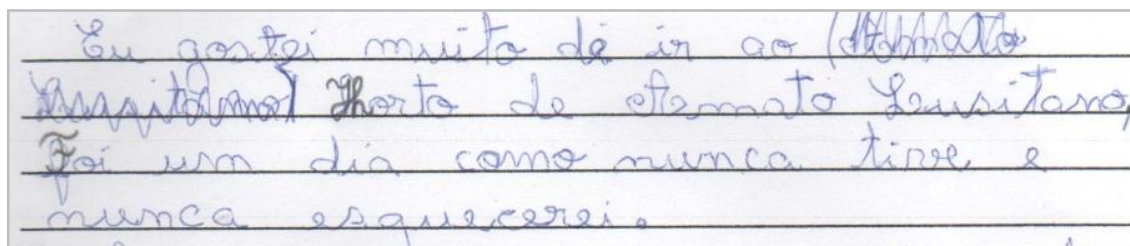 Eu gostei muito de ir ao (Amato
Lusitano) Horto de Amato Lusitano,
Foi um dia como nunca tive e
nunca esquecerei.